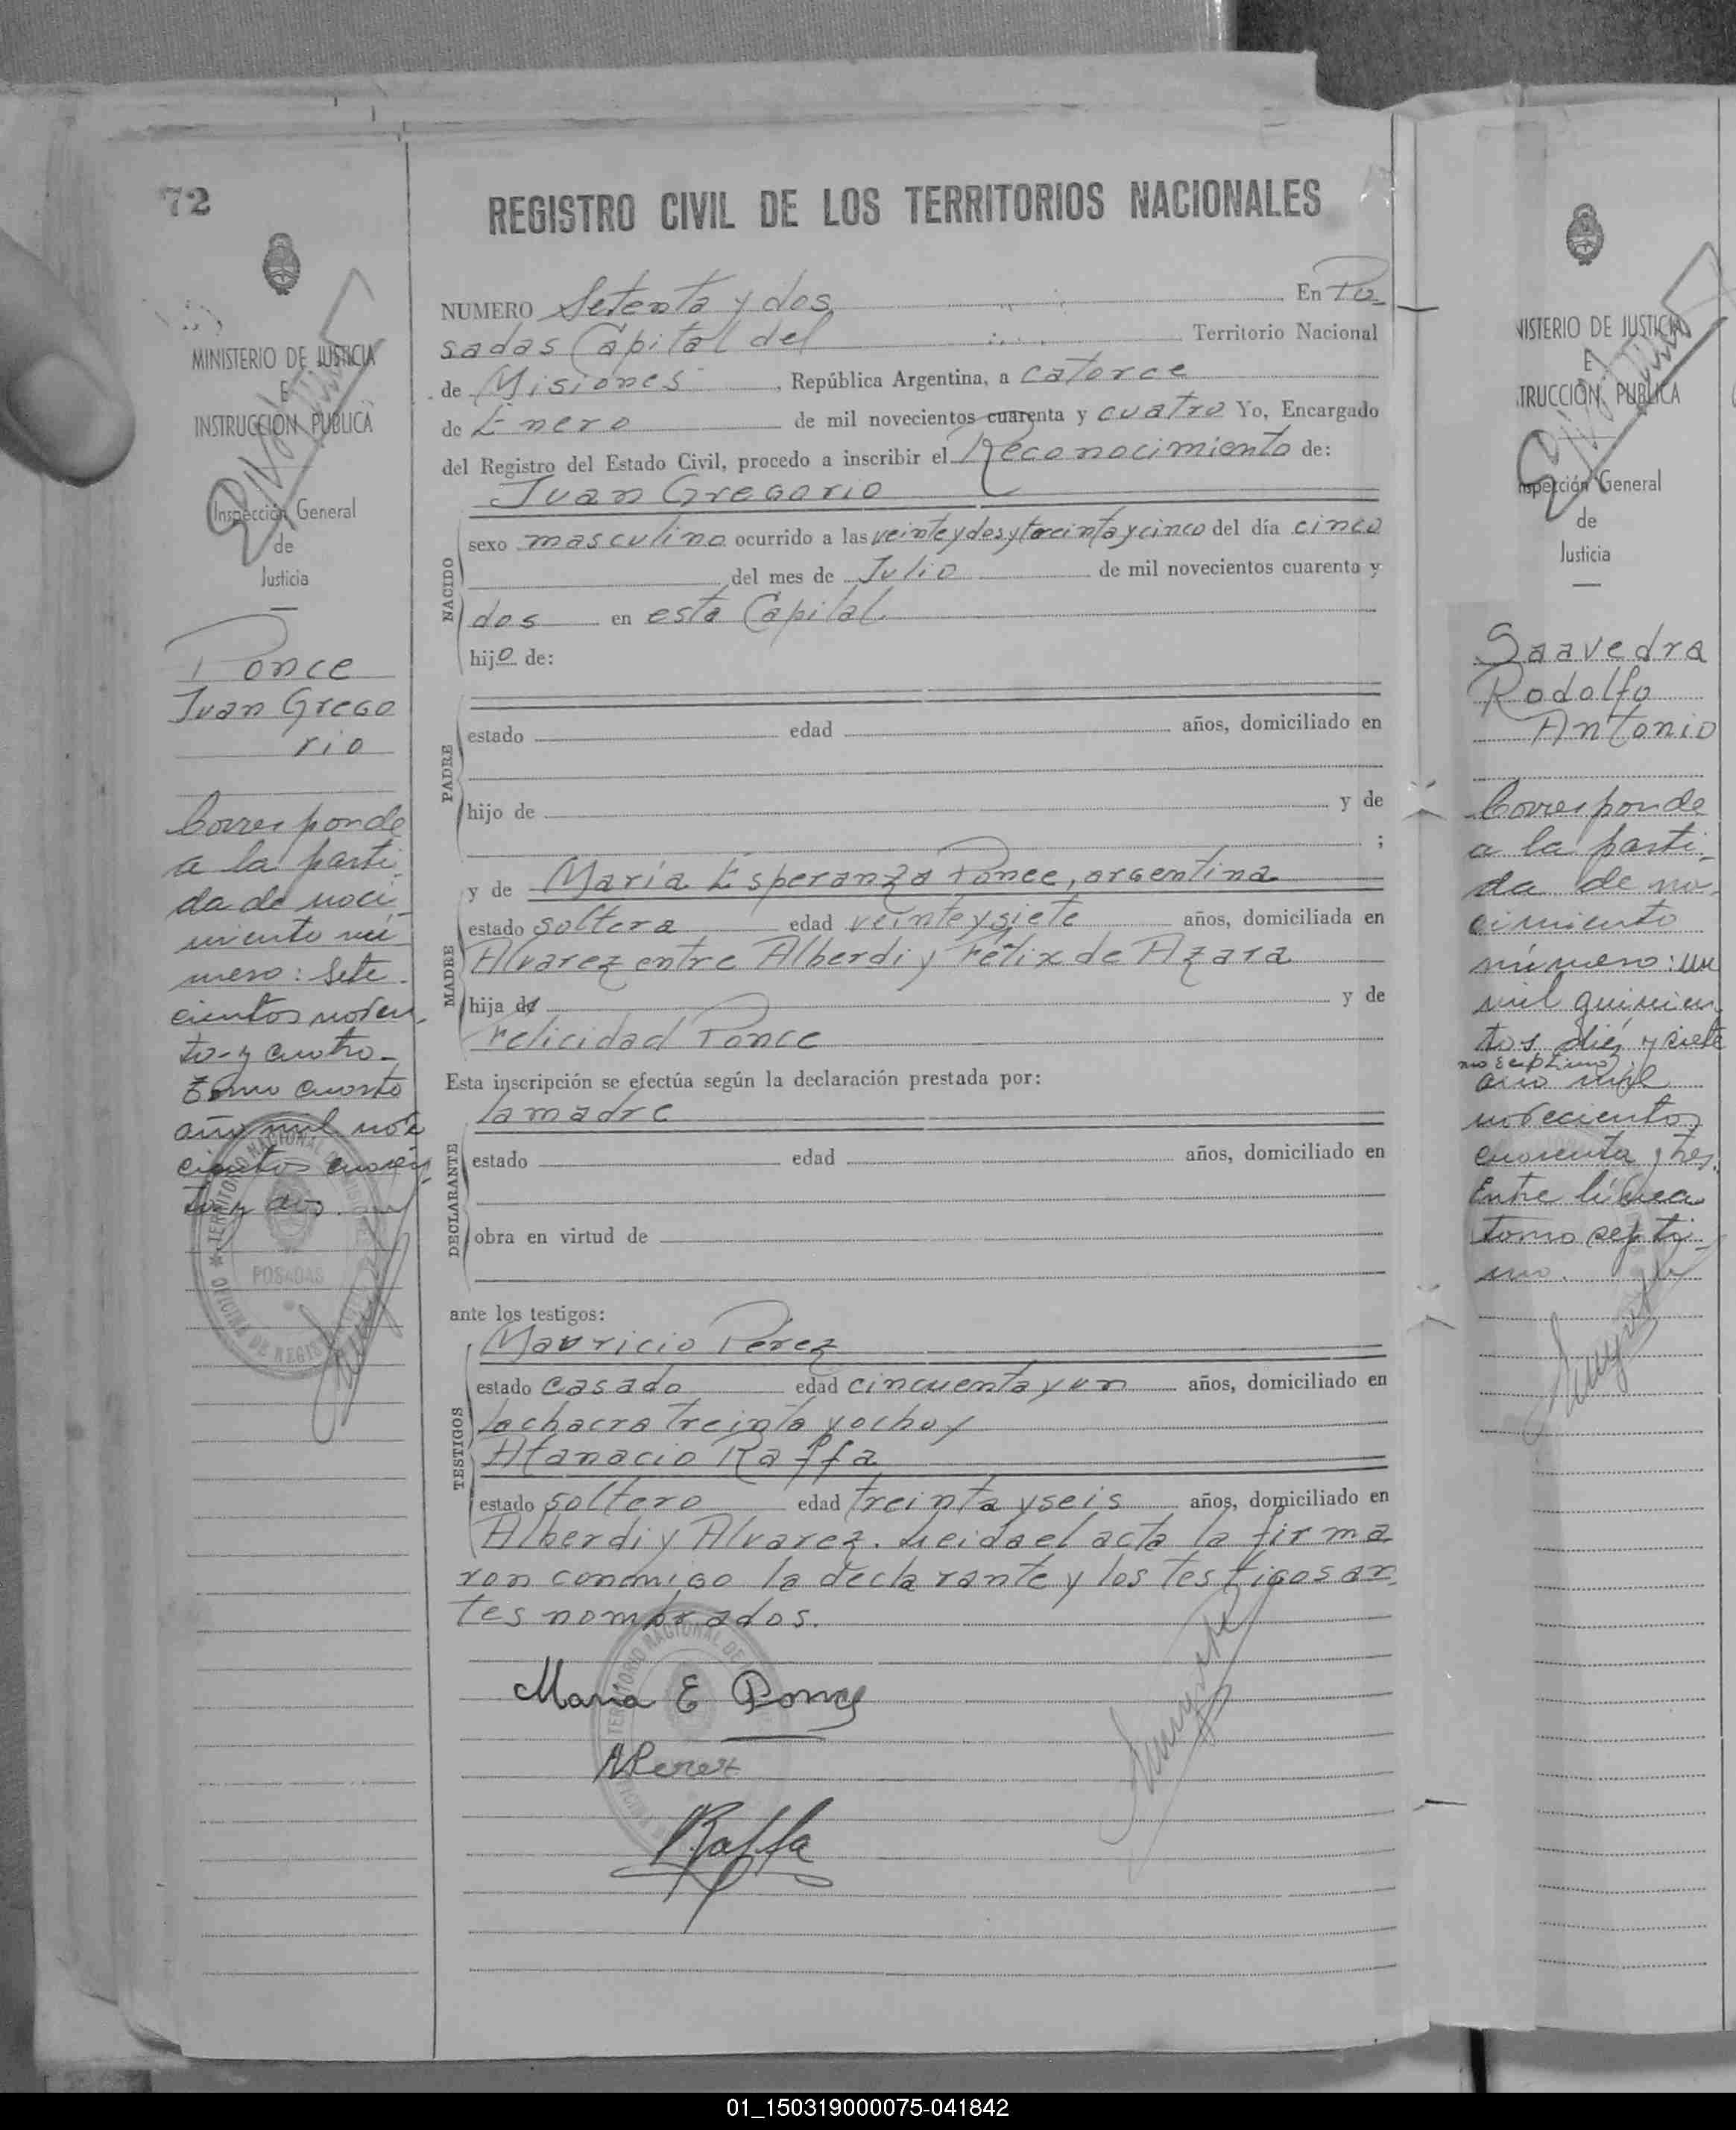 72
MINISTERIO DE JUSTICIA
E
INSTRUCCION PUBLICA
Inspección General
de
Justicia
Ponce
Juan Grego
rio
Corresponde
a la parti
da de naci
miento nú
mero: Sete
cientos noven
ta y cuatro
Tomo cuarto
año mil nove
cientos cuaren
ta y dos.
TERRITORIO NACIONAL DE MISIONES
POSADAS
OFICINA DE REGIS
REGISTRO CIVIL DE LOS TERRITORIOS NACIONALES
NUMERO Setenta y dos En Po-
sadas Capital del Territorio Nacional
de Misiones, República Argentina, a catorce
de Enero de mil novecientos cuarenta y cuatro Yo, Encargado
del Registro del Estado Civil, procedo a inscribir el Reconocimiento de:
Juan Gregorio
NACIDO
sexo masculino ocurrido a las veinte y dos y treinta y cinco del día cinco
del mes de Julio de mil novecientos cuarenta y
dos en esta Capital.
hijo de:
PADRE
estado edad años, domiciliado en
hijo de y de
;
MADRE
y de María Esperanza Ponce, argentina
estado soltera edad veinte y siete años, domiciliada en
Alvarez entre Alberdi y Félix de Azara
hija de y de
Felicidad Ponce
Esta inscripción se efectúa según la declaración prestada por:
la madre
DECLARANTE
estado edad años, domiciliado en
obra en virtud de
ante los testigos:
TESTIGOS
Mauricio Pérez
estado casado edad cincuenta y un años, domiciliado en
la chacra treinta y ocho y
Atanacio Raffa
estado soltero edad treinta y seis años, domiciliado en
Alberdi y Alvarez. Leida el acta la firma
ron conmigo la declarante y los testigos an
tes nombrados.
TERRITORIO NACIONAL DE
Maria E Ponce
MPerez
Raffa
NISTERIO DE JUSTICIA
E
TRUCCION PUBLICA
Inspección General
de
Justicia
Saavedra
Rodolfo
Antonio
Corresponde
a la parti-
da de na-
cimiento
número: un
mil quinien
tos diez y siete
mo septimo
año mil
novecientos
cuarenta y tres.
Entre línea
tomo septi-
mo.
01_150319000075-041842